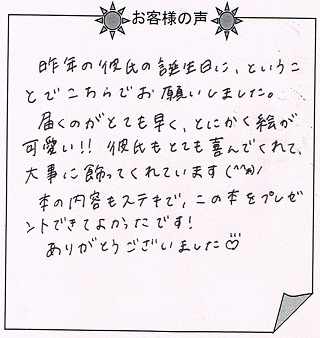 お客様の声
昨年の彼氏の誕生日に、というこ
とでこちらでお願いしました。
届くのがとても早く、とにかく絵が
可愛い!! 彼氏もとても喜んでくれて、
大事に飾ってくれています(^^*)/
本の内容もステキで、この本をプレゼ
ントできてよかったです!
ありがとうございました♡